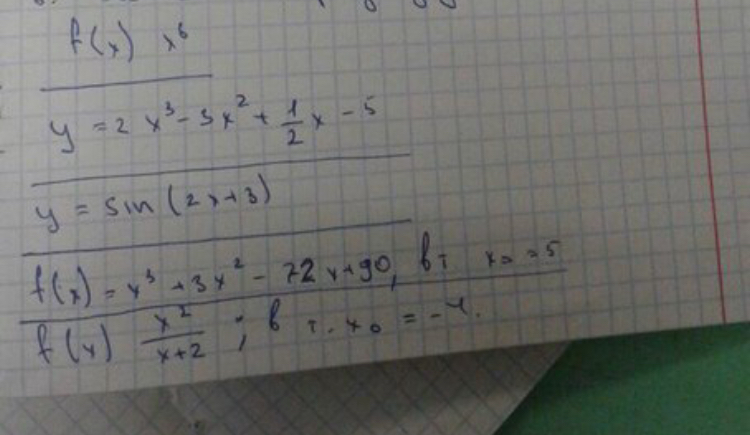 f(x) x⁶
y = 2x³ - 3x² + 1/2 x - 5
y = sin(2x+3)
f(x) = x³ + 3x² - 72x + 90, в т x₀ = 5
f(x) x²/(x+2) ; в т. x₀ = -4.